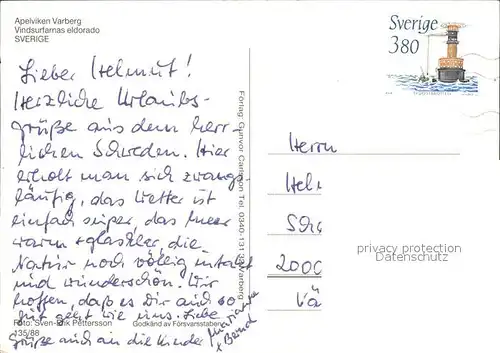 Apelviken Varberg
Vindsurfarnas eldorado
SVERIGE
Sverige
380
Lieber Helmut!
Herzliche Urlaubs-
grüße aus dem herr-
lichen Schweden. Hier
erholt man sich zwang-
läufig, das Wetter ist
einfach super, das Meer
warm + glasklar, die
Natur noch völlig intakt
und wunderschön. Wir
hoffen, daß es Dir auch so
gut geht wie uns. Liebe
Grüße auch an die Kinder
Marianne
+ Bernd
Foto: Sven-Erik Pettersson Godkänd av Försvarsstaben
135/88
Förlag: Gunvor Carlsson Tel. 0340-131 Varberg
Herrn
Hel
Sch
2000
privacy protection
Datenschutz